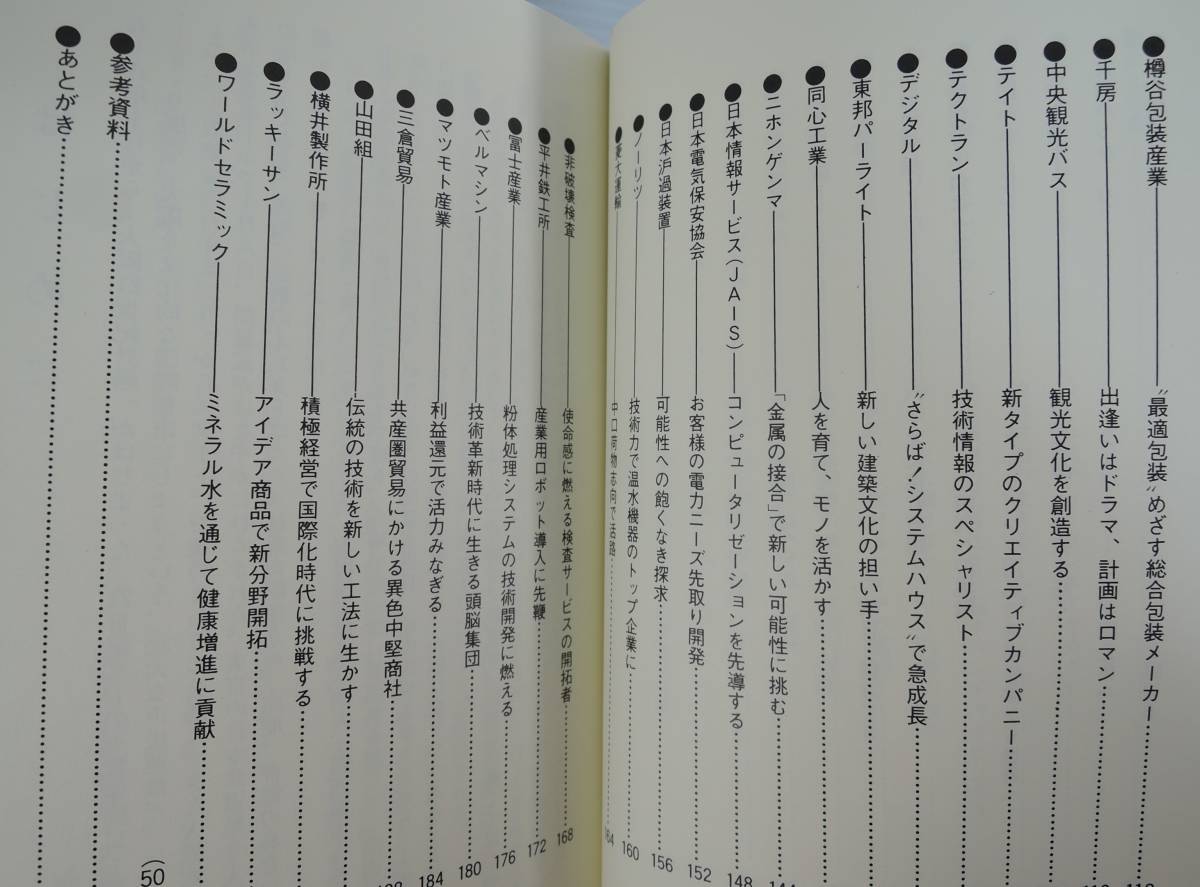 ●樽谷包装産業――“最適包装”めざす総合包装メーカー……
●千房――出逢いはドラマ、計画はロマン……
●中央観光バス――観光文化を創造する……
●テイト――新タイプのクリエイティブカンパニー……
●テクトラン――技術情報のスペシャリスト……
●デジタル――“さらば！システムハウス”で急成長……
●東邦パーライト――新しい建築文化の担い手……
●同心工業――人を育て、モノを活かす……
●ニホンゲンマ――「金属の接合」で新しい可能性に挑む……
●日本情報サービス（JAIS）――コンピュータリゼーションを先導する……148
●日本電気保安協会――お客様の電力ニーズ先取り開発……152
●日本沪過装置――可能性への飽くなき探求……156
●ノーリツ――技術力で温水機器のトップ企業に……160
――中口荷物志向で活路……164
●非破壊検査――使命感に燃える検査サービスの開拓者……168
●平井鉄工所――産業用ロボット導入に先鞭……172
●冨士産業――粉体処理システムの技術開発に燃える……176
●ベルマシン――技術革新時代に生きる頭脳集団……180
●マツモト産業――利益還元で活力みなぎる……184
●三倉貿易――共産圏貿易にかける異色中堅商社……
●山田組――伝統の技術を新しい工法に生かす……
●横井製作所――積極経営で国際化時代に挑戦する……
●ラッキーサン――アイデア商品で新分野開拓……
●ワールドセラミック――ミネラル水を通じて健康増進に貢献……
(50
●参考資料……
●あとがき……